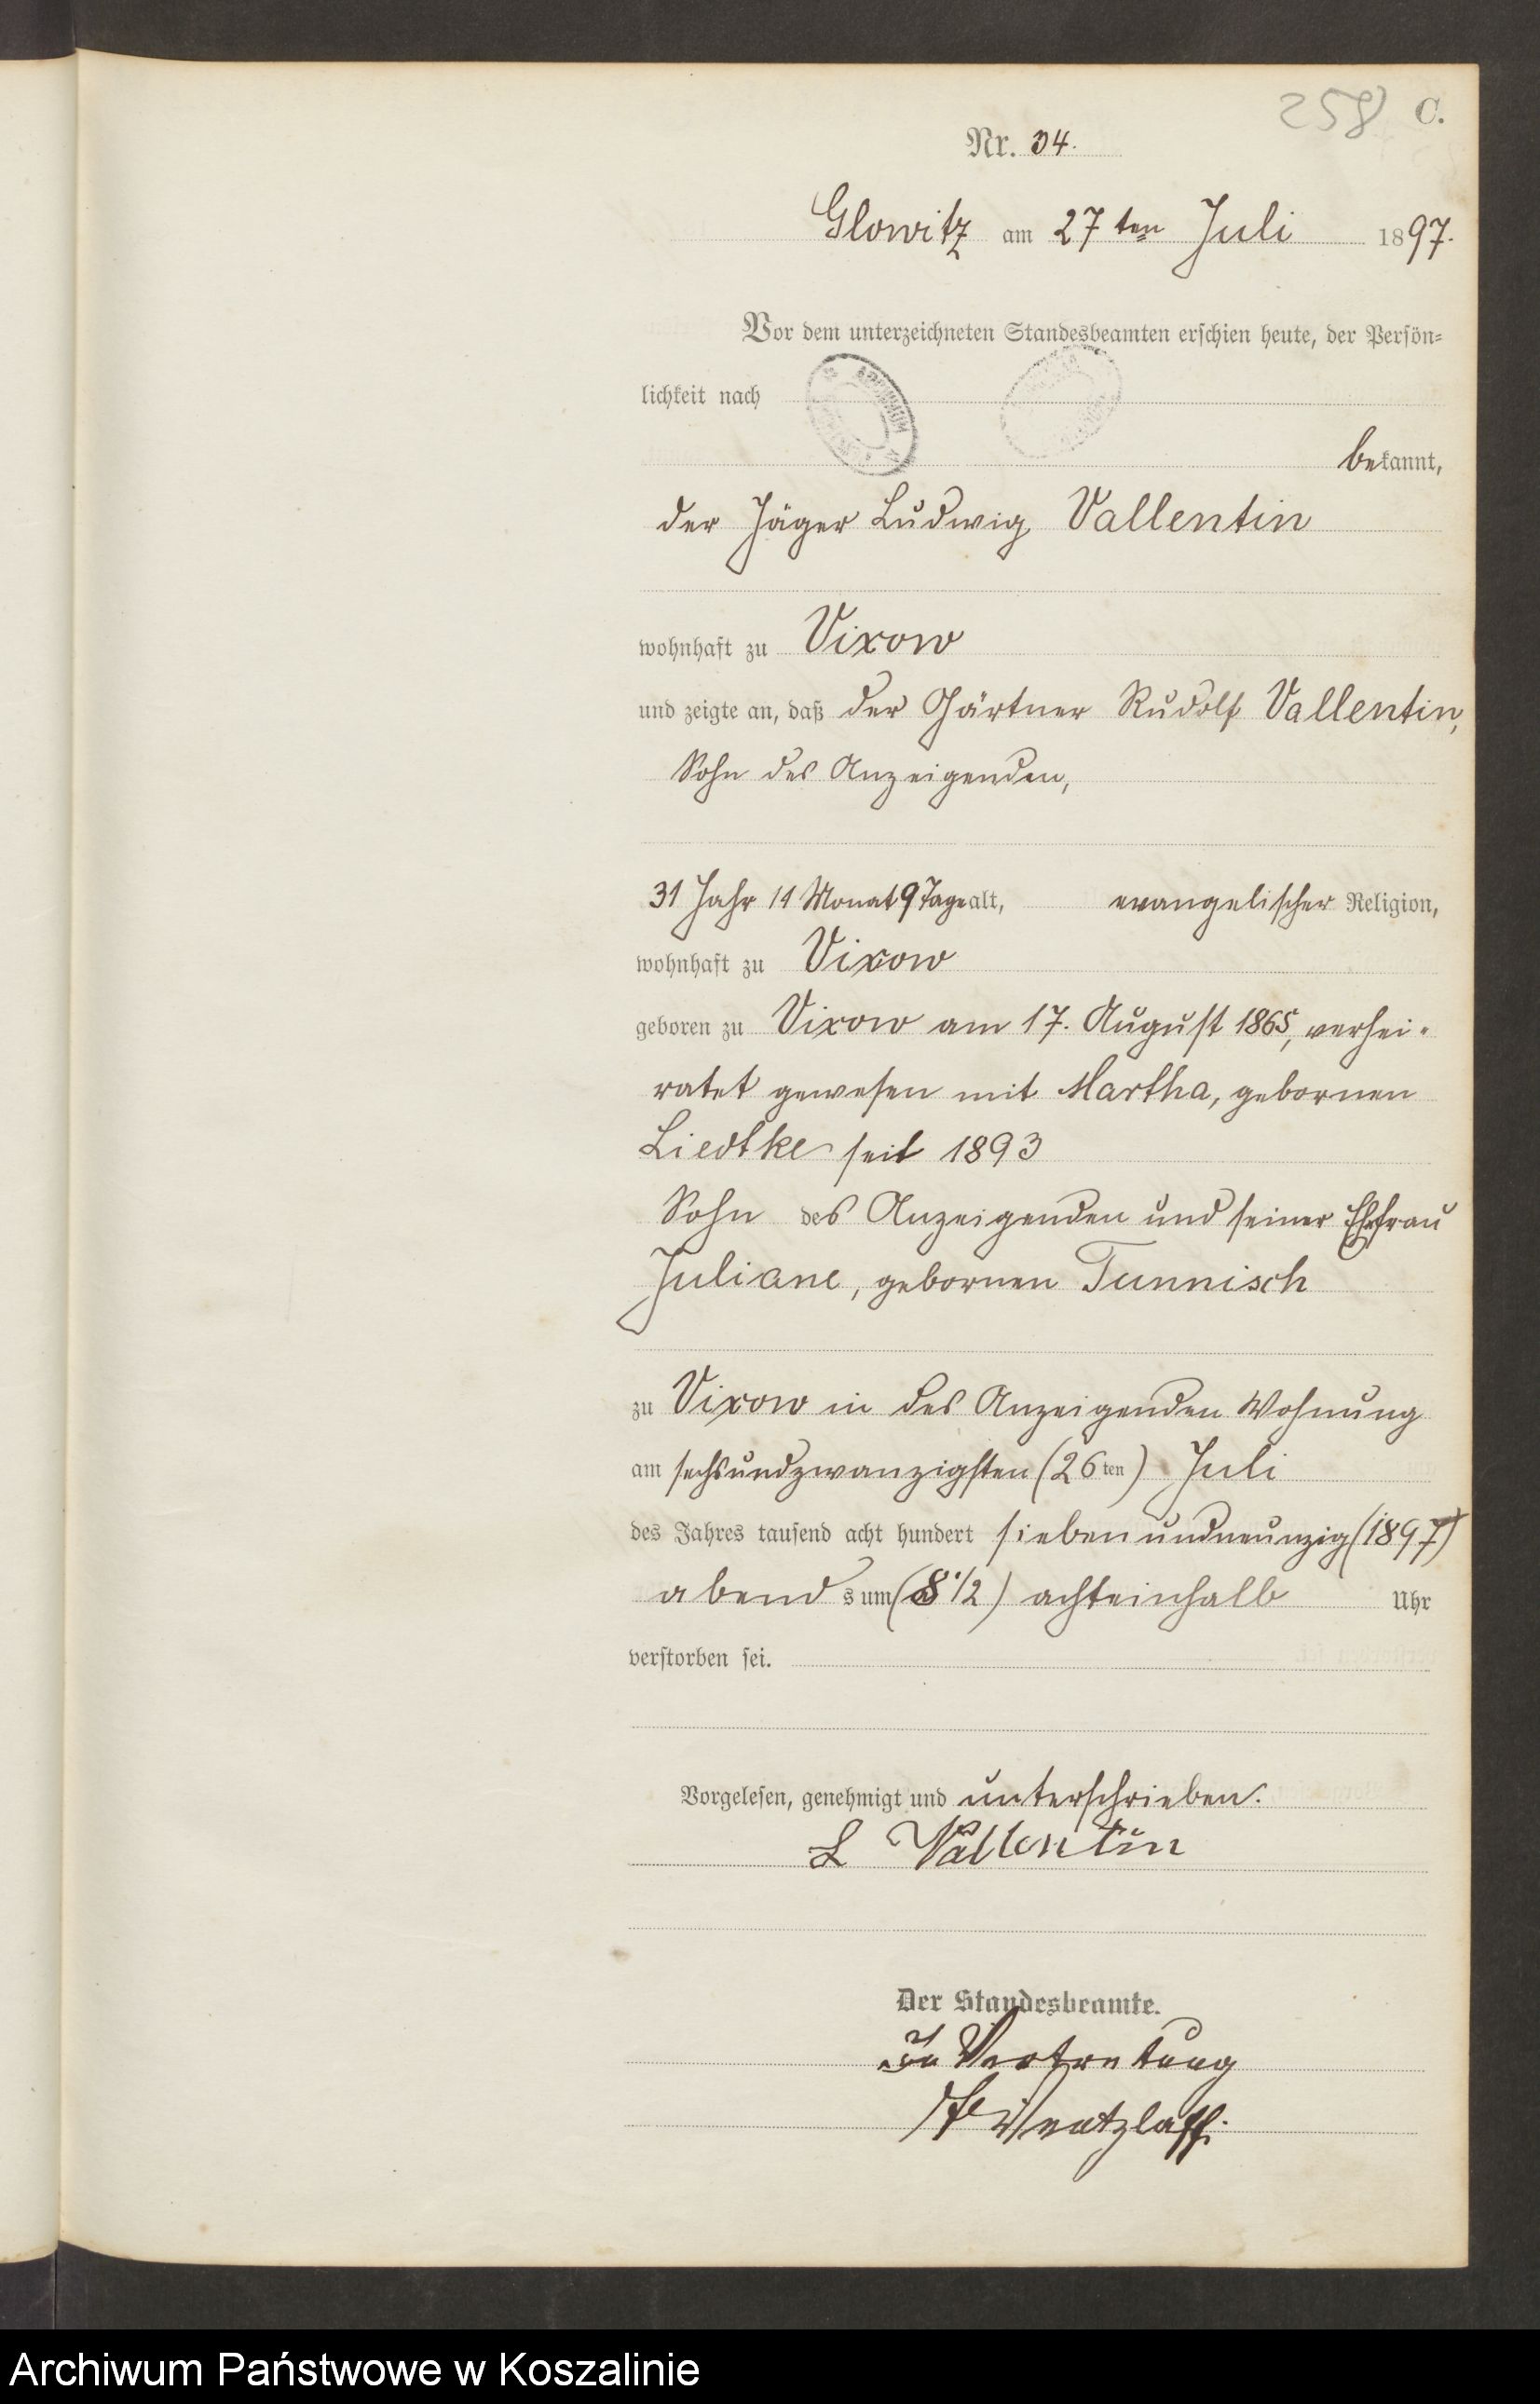 258 C.
Nr. 34.
Glowitz am 27ten Juli 1897.
Vor dem unterzeichneten Standesbeamten erschien heute, der Persön-
lichkeit nach
bekannt,
der Jäger Ludwig Vallentin
wohnhaft zu Vixow
und zeigte an, daß der Gärtner Rudolf Vallentin,
Sohn des Anzeigenden,
31 Jahr 11 Monat 9 Tage alt, evangelischer Religion,
wohnhaft zu Vixow
geboren zu Vixow am 17. August 1865, verhei-
ratet gewesen mit Martha, gebornen
Liedtke seit 1893
Sohn des Anzeigenden und seiner Ehefrau
Juliane, gebornen Tunnisch
zu Vixow in des Anzeigenden Wohnung
am sechsundzwanzigsten (26ten) Juli
des Jahres tausend acht hundert siebenundneunzig (1897)
abends um (8 1/2) achteinhalb Uhr
verstorben sei.
Vorgelesen, genehmigt und unterschrieben.
L Vallentin
Der Standesbeamte.
In Vertretung
Wentzlaff.
Archiwum Państwowe w Koszalinie